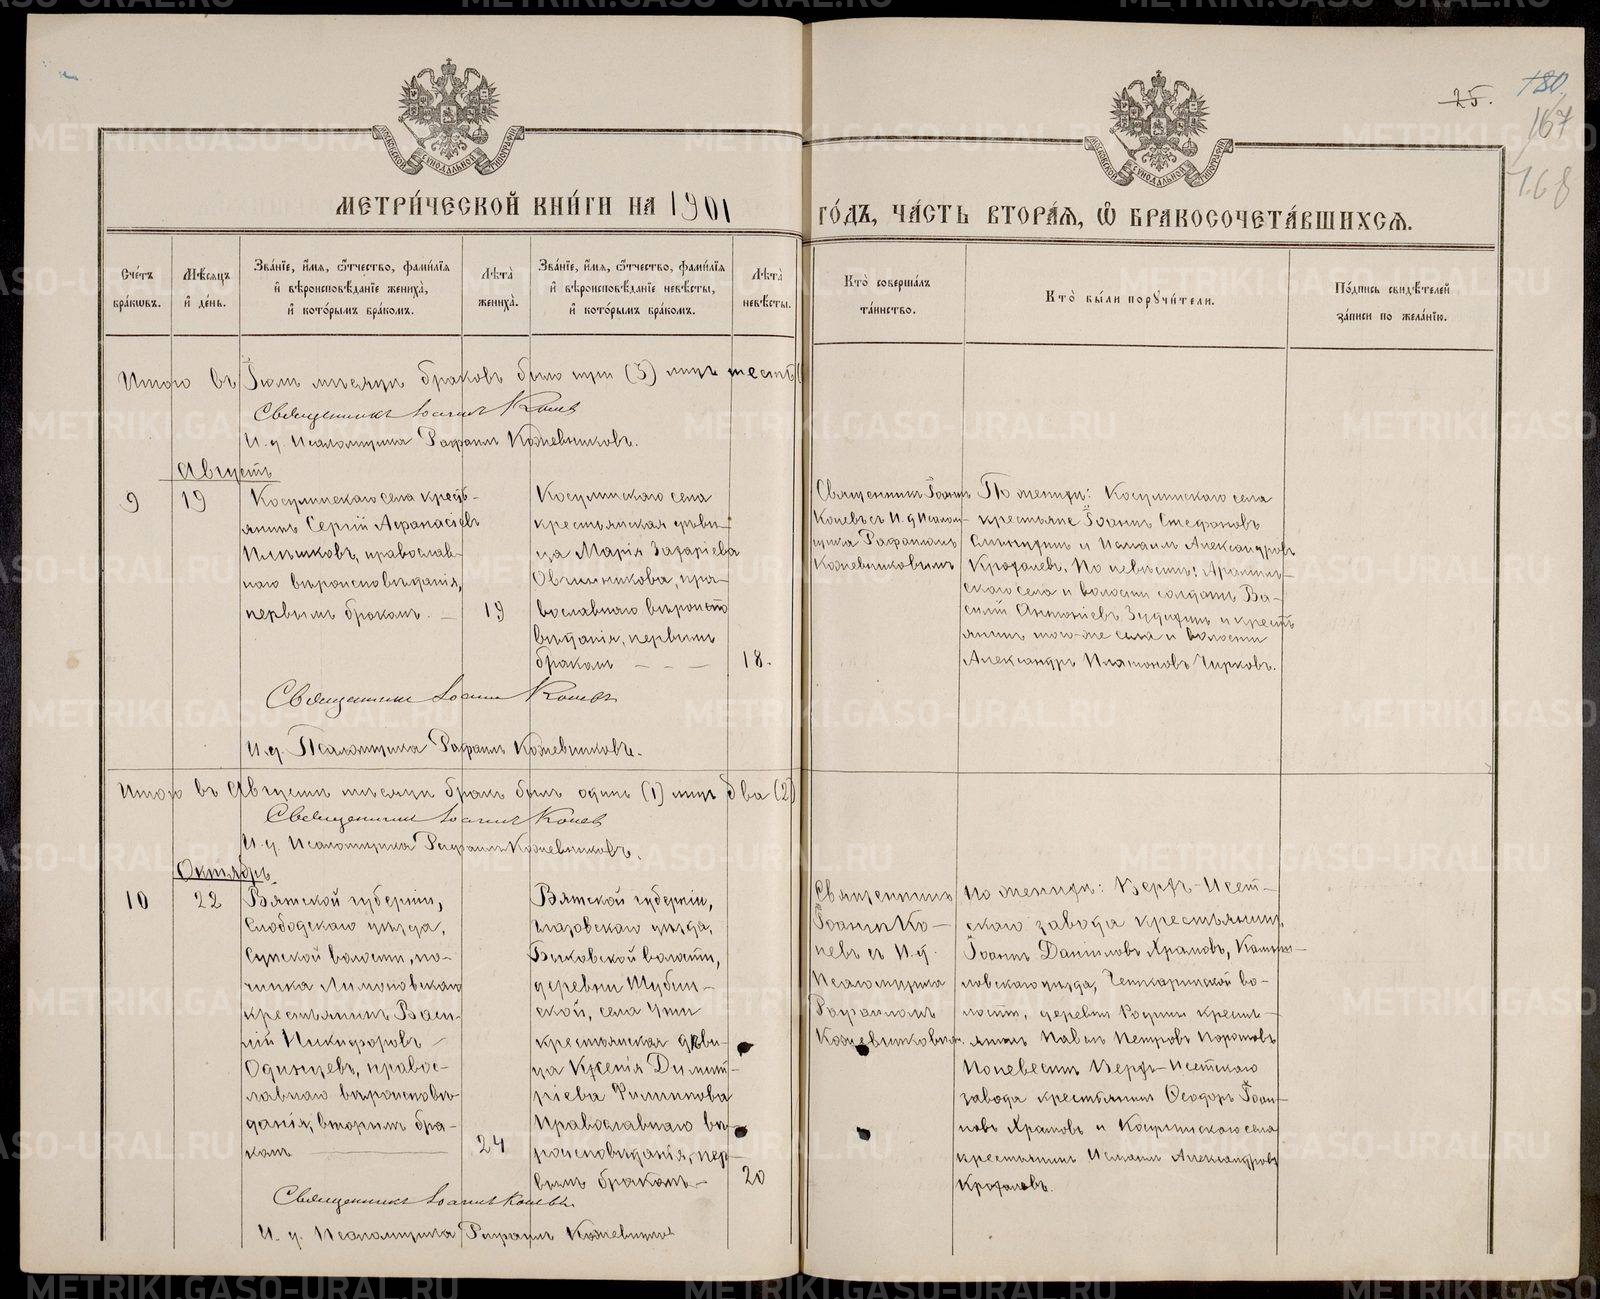 25.
180
167
168
МЕТРИ́ЧЕСКОЙ КНИ́ГИ НА 1901 ГО́ДЪ, ЧА́СТЬ ВТОРА́Я, Ѽ БРАКОСОЧЕТА́ВШИХСЯ.
Сче́тъ бра́кѡвъ.
Мѣ́сяцъ и҆ де́нь.
Зва́нїе, и҆́мя, ѻ҆́тчество, фами́лїя
и҆ вѣроисповѣ́данїе жениха̀,
и҆ кото́рымъ бра́комъ.
Лѣта̀ жениха̀.
Зва́нїе, и҆́мя, ѻ҆́тчество, фами́лїя
и҆ вѣроисповѣ́данїе невѣ́сты,
и҆ кото́рымъ бра́комъ.
Лѣта̀ невѣ́сты.
Кто̀ соверша́лъ та́инство.
Кто̀ бы́ли порꙋчи́тели.
По́дпись свидѣ́телей за́писи по жела́нїю.
Итого въ Іюлѣ мѣсяцѣ браковъ было три (3) лицъ шесть
Священникъ Іоаннъ Коневъ
И. д. Псаломщика Рафаилъ Кожевниковъ.
Августъ
9
19
Косулинскаго села кресть-
янинъ Сергій Аѳанасіевъ
православ-
наго вѣроисповѣданія,
первымъ бракомъ. —
19
Косулинскаго села
крестьянская дѣви-
ца Марія Захаріева
Овчинникова, пра-
вославнаго вѣроиспо
вѣданія, первымъ
бракомъ — — —
18.
Священникъ Іоаннъ
Коневъ съ И. д Псалом-
щика Рафаиломъ
Кожевниковымъ
По женихѣ: Косулинскаго села
крестьяне Іоаннъ Стефановъ
и Исмаилъ Александровъ
По невѣстѣ: Арамиль-
скаго села и волости солдатъ Ва-
силій Антоніевъ и кресть
янинъ того-же села и волости
Александръ Платоновъ Чирковъ.
Священникъ Іоаннъ Коневъ
И. д. Псаломщика Рафаилъ Кожевниковъ.
Итого въ Августѣ мѣсяцѣ бракъ былъ одинъ (1) лицъ два (2)
Священникъ Іоаннъ Коневъ
И. д. Псаломщика Рафаилъ Кожевниковъ.
Октябрь
10
22
Вятской губерніи,
Слободскаго уѣзда,
Сунской волости, по-
чинка Лимоновскаго
крестьянинъ Васи-
лій Никифоровъ
Одинцевъ, правос-
лавнаго вѣроисповѣ-
данія, вторымъ бра-
комъ ———
24
Вятской губерніи,
Глазовскаго уѣзда,
волости,
деревни Шубин-
ской, села Укти
крестьянская дѣви-
ца Ксенія Димит-
ріева Филиппова
Православнаго вѣ-
роисповѣданія, пер-
вымъ бракомъ —
20
Священникъ
Іоаннъ Ко-
невъ съ И. д.
Псаломщика
Рафаиломъ
Кожевниковым.
По женихѣ: Верхъ-Исет-
скаго завода крестьянинъ
Іоаннъ Даніиловъ Храмовъ, Камыш-
ловскаго уѣзда, во-
лости, деревни крест-
янинъ Павелъ Петровъ
По невестѣ Верхъ-Исетскаго
завода крестьянинъ Ѳеодоръ Іоан-
новъ Храмовъ и Косулинскаго села
крестьянинъ Исмаилъ Александровъ
Священникъ Іоаннъ Коневъ
И. д. Псаломщика Рафаилъ Кожевников
METRIKI.GASO-URAL.RU